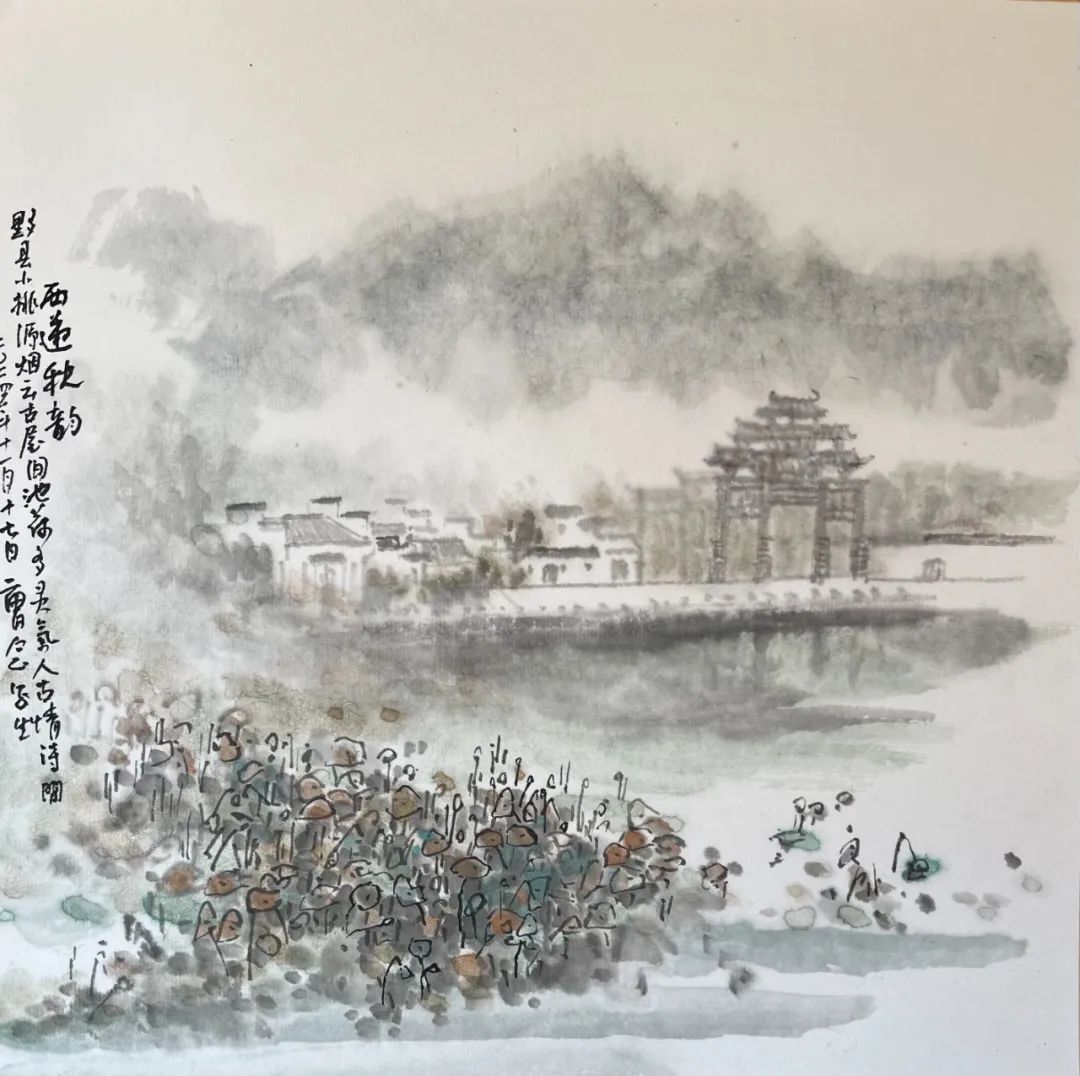 西递秋韵
黟县小桃源烟云古屋间池荷多灵气人古情诗
二〇二四年十一月十七日 写生